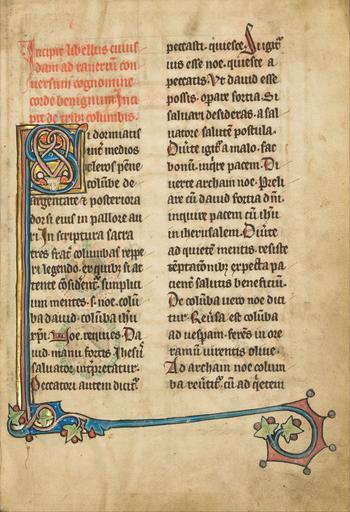 Incipit libellus cuius
dam ad raneriū con
uersum cognomine
corde benignum. Inci
pit de tribus columbis.
Si dormiatis
int̄ medios
cleros pēne
colūbe de
argentate & posteriora
dorsi eius in pallore au
ri. In scriptura sacra
tres fr̄s columbas reppe
ri legendo. ex quibus si at
tente cōsiderent simplici
um mentes. s. noe. colū
ba dauid. colūba ihū
xp̄i. Noe. requies. Da
uid manu fortis. Ihesū
saluator int̄pretatur.
Peccatori autem dicit̄.
peccasti. quiesce. Si igit̄
uis esse noe. quiesce a
peccatis. Vt dauid esse
possis. opare fortia. Si
saluari desideras. a sal
uatore salutē postula.
Diūte igit̄ a malo. fac
bonū. inq̄re pacem. Di
uerte archam noe. Preli
are cū dauid fortia dn̄i.
inquire pacem cū ihū
in iherusalem. Diūte
ad quietē mentis. resiste
tēptationib; expecta pa
cient̄ salutis beneficiū.
De colūba uero noe dici
tur. Reūsa est colūba
ad uesperam. ferēs in ore
ramū uirentis oliue.
Ad archam noe colum
ba reūtit̄. cū ad q̄etem